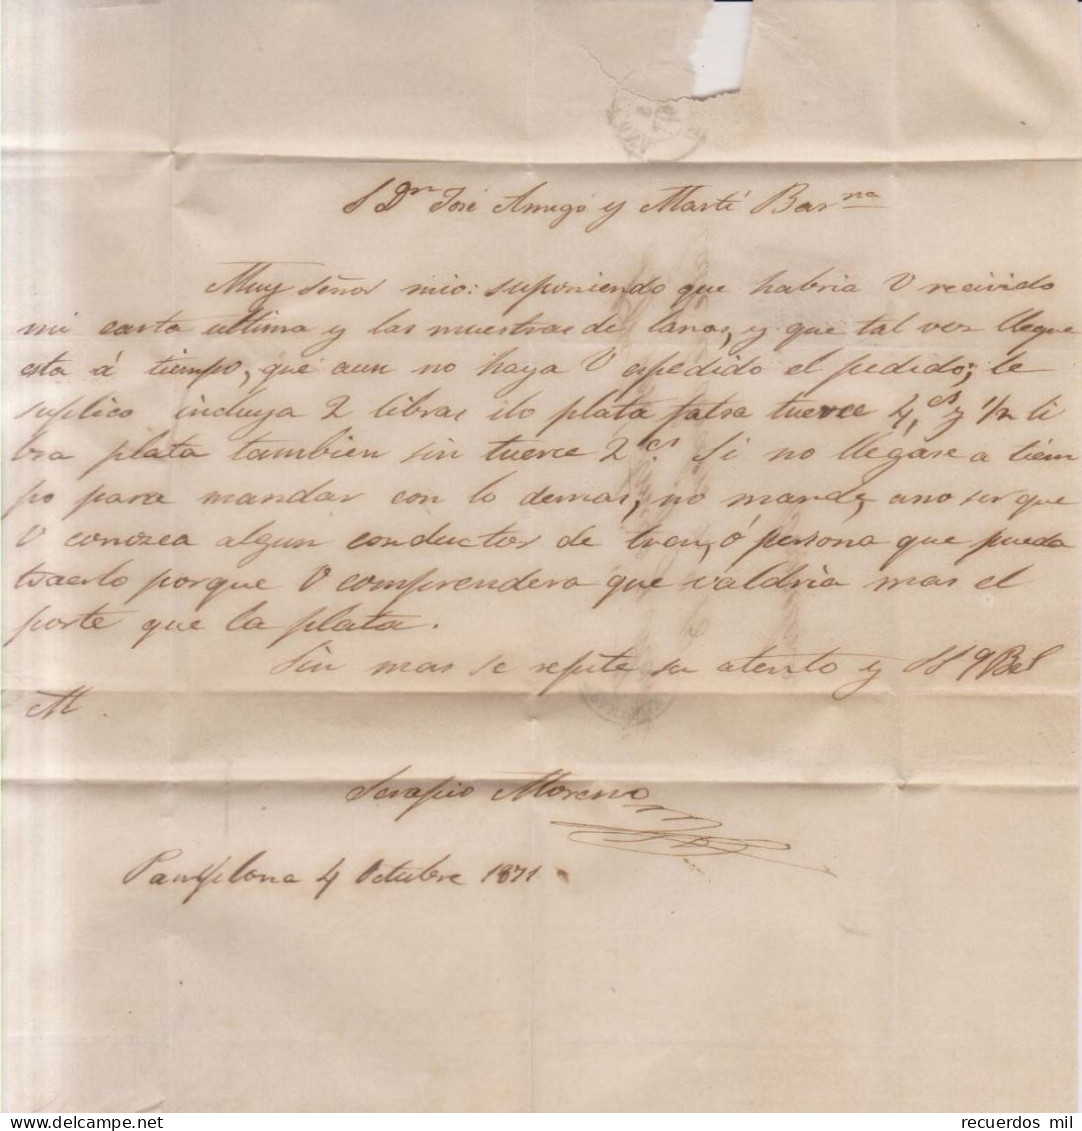 S Dn José Amigó y Martí Barna
Muy señor mio: suponiendo que habria V recivido
mi carta ultima y las muestras de lanas, y que tal vez llegue
esta á tiempo, que aun no haya V espedido el pedido; le
suplico incluya 2 libras ilo plata falsa tuerce 4,cs y 1/2 li
bra plata tambien sin tuerce 2.cs Si no llegáse a tiem
po para mandar con lo demas, no mande, ano ser que
V conozca algun conductor de tren, ó persona que pueda
traerlo porque V comprendera que valdria mas el
porte que la plata.
Sin mas se repite su atento y SS q B S
M.
Serapio Moreno
Pamplona 4 Octubre 1871.
recuerdos mil